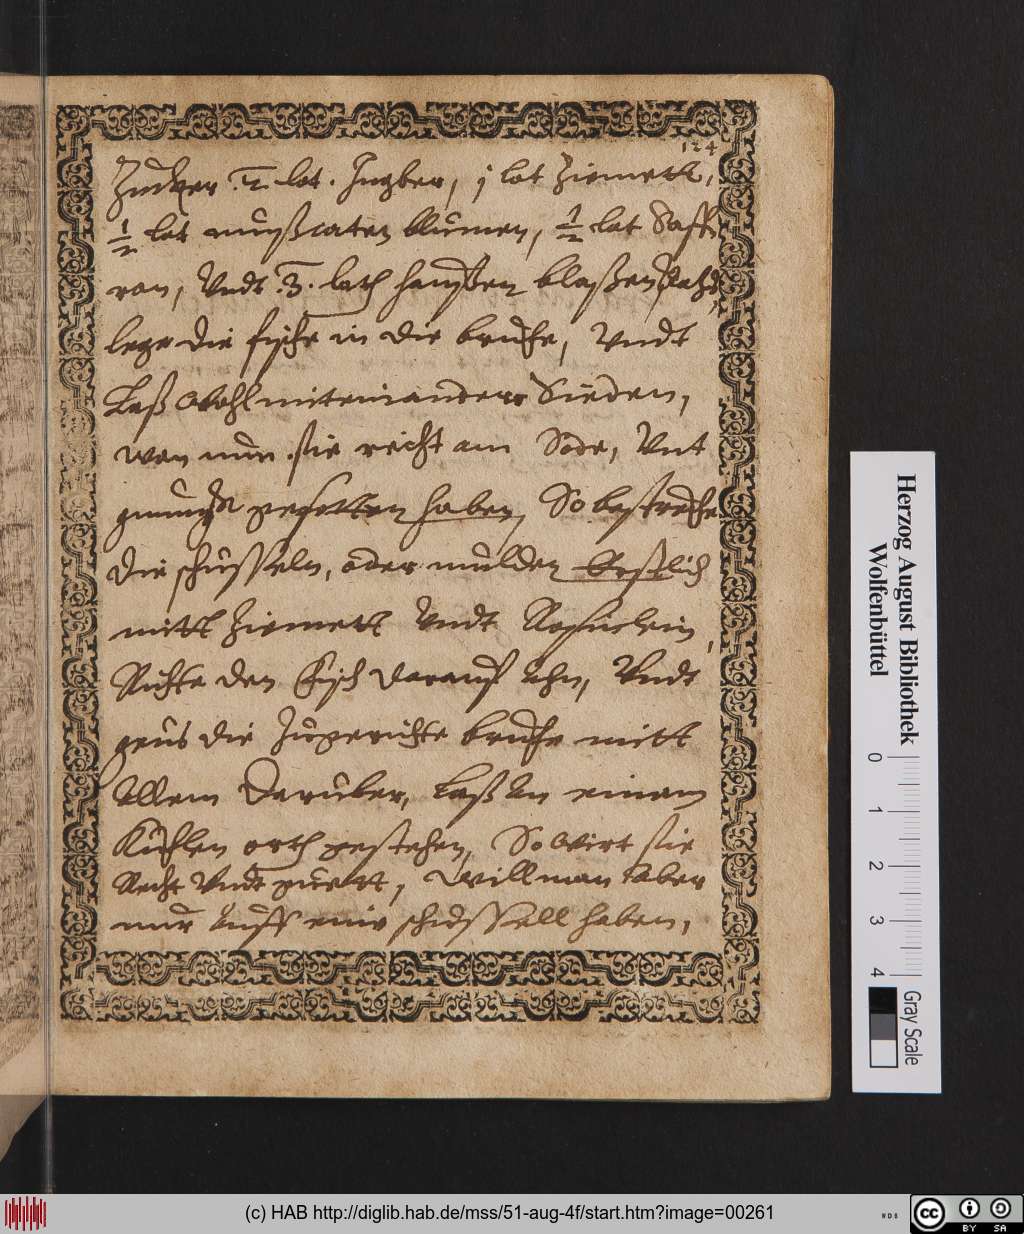 124
Zucker .2. lot. Ingber, j lot Ziemett,
1/2 lot mußcaten blumen, 1/2 lot Saff
ran, Vndt .3. loth haußen blaßen
lege die fische in die bruhe, Vndt
Laß Wohl miteinander Sieden,
wen nun sie recht am Sode, Vnt
gnungk gesotten haben, So bestreche
die schusseln, oder mulden Erstlich
mitt Ziemett Vndt
Richte den Fisch darauf ahn, Vndt
geus die Zugerichte bruhe mitt
Allem daruber, Laß an einem
Kuhlen orth gestehen, So Wirt sie
Recht Vndt guett, Will man aber
nur auff eine schussell haben,
Herzog August Bibliothek
Wolfenbüttel
0 1 2 3 4
Gray Scale
(c) HAB http://diglib.hab.de/mss/51-aug-4f/start.htm?image=00261
WDB
cc BY SA